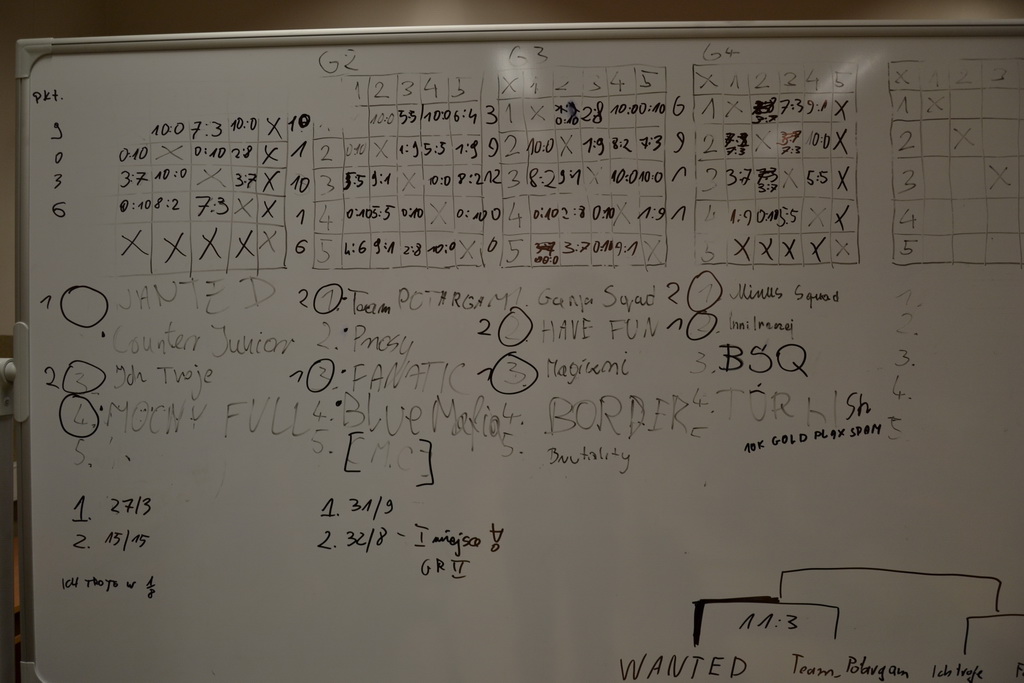 G2 G3 G4
pkt. 1 2 3 4 5 X 1 2 3 4 5 X 1 2 3 4 5 X 1 2 3
9 10:0 7:3 10:0 X 10 10:0 5:5 10:0 6:4 3 1 X 0:10 2:8 10:0 0:10 6 1 X 7:3 9:1 X 1 X
0 0:10 X 0:10 2:8 X 1 2 0:10 X 1:9 5:5 1:9 9 2 10:0 X 1:9 8:2 7:3 9 2 7:3 X 7:3 10:0 X 2 X
3 3:7 10:0 X 3:7 X 10 3 5:5 9:1 X 10:0 8:2 12 3 8:2 9:1 X 10:0 10:0 1 3 3:7 X 5:5 X 3 X
6 0:10 8:2 7:3 X X 1 4 0:10 5:5 0:10 X 0:10 0 4 0:10 2:8 0:10 X 1:9 1 4 1:9 0:10 5:5 X X 4
X X X X X 6 5 4:6 9:1 2:8 10:0 X 0 5 3:7 0:10 9:1 X X X X X X 5
1 WANTED 2 1. Team POTARGAM 1. Ganja Sqad 2 1 Minus Squad 1.
Counter Junior 2. Prosy 2 2 HAVE FUN 1 2. Inni Inaczej 2.
2 3 Ich Troje 1 3. FANATIC 1 3. Magiczni 3. BSQ 3.
4. MOCNY FULL 4. Blue Mafia 4. BORDER 4. 4.
5. 5. [M.C] 5. Brutality 10K GOLD PLAX SPAM 5.
1. 27/3 1. 31/9
2. 15/15 2. 32/8 - I miejsce !
GR II
Ich troje w 1/8
11:3
WANTED Team_Potargam Ich troje F